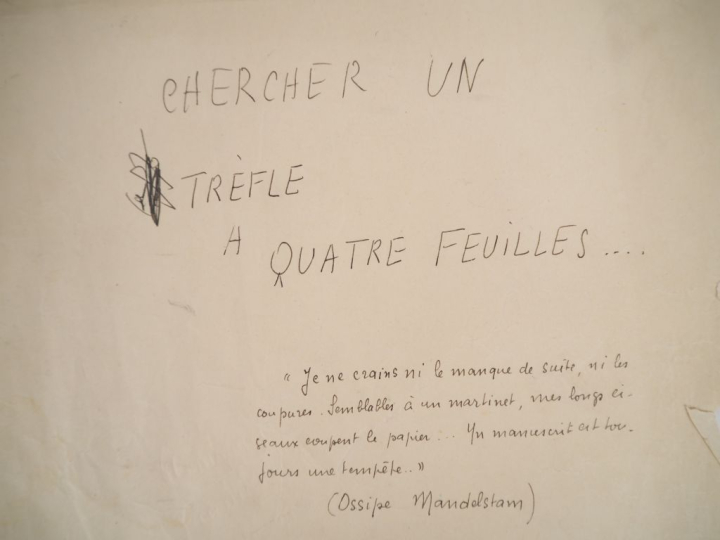 CHERCHER UN
TRÈFLE
A
QUATRE FEUILLES....
« Je ne crains ni le manque de suite, ni les
coupures. Semblables à un martinet, mes longs ci-
seaux coupent le papier... Un manuscrit est tou-
jours une tempête.. »
(Ossipe Mandelstam)